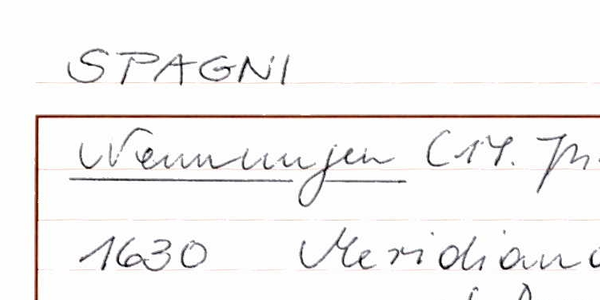 SPAGNI
Nennungen (17. Jh.
1630 Meridian